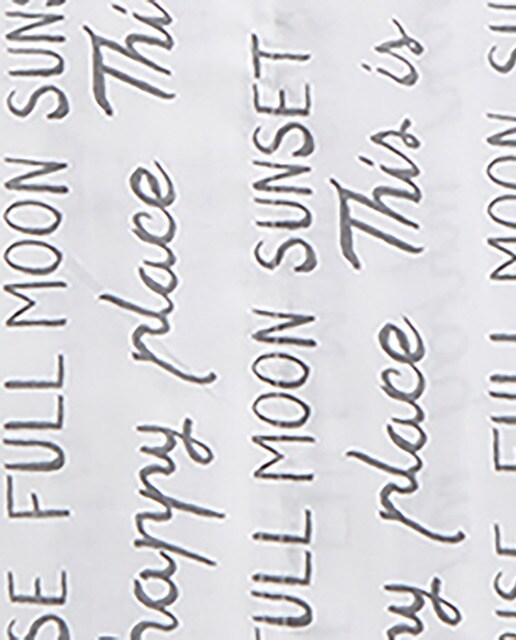 SE FULL MOON SUNS
happy place Thi
FULL MOON SUNSET
py place This is
ISE FULL MOON SU